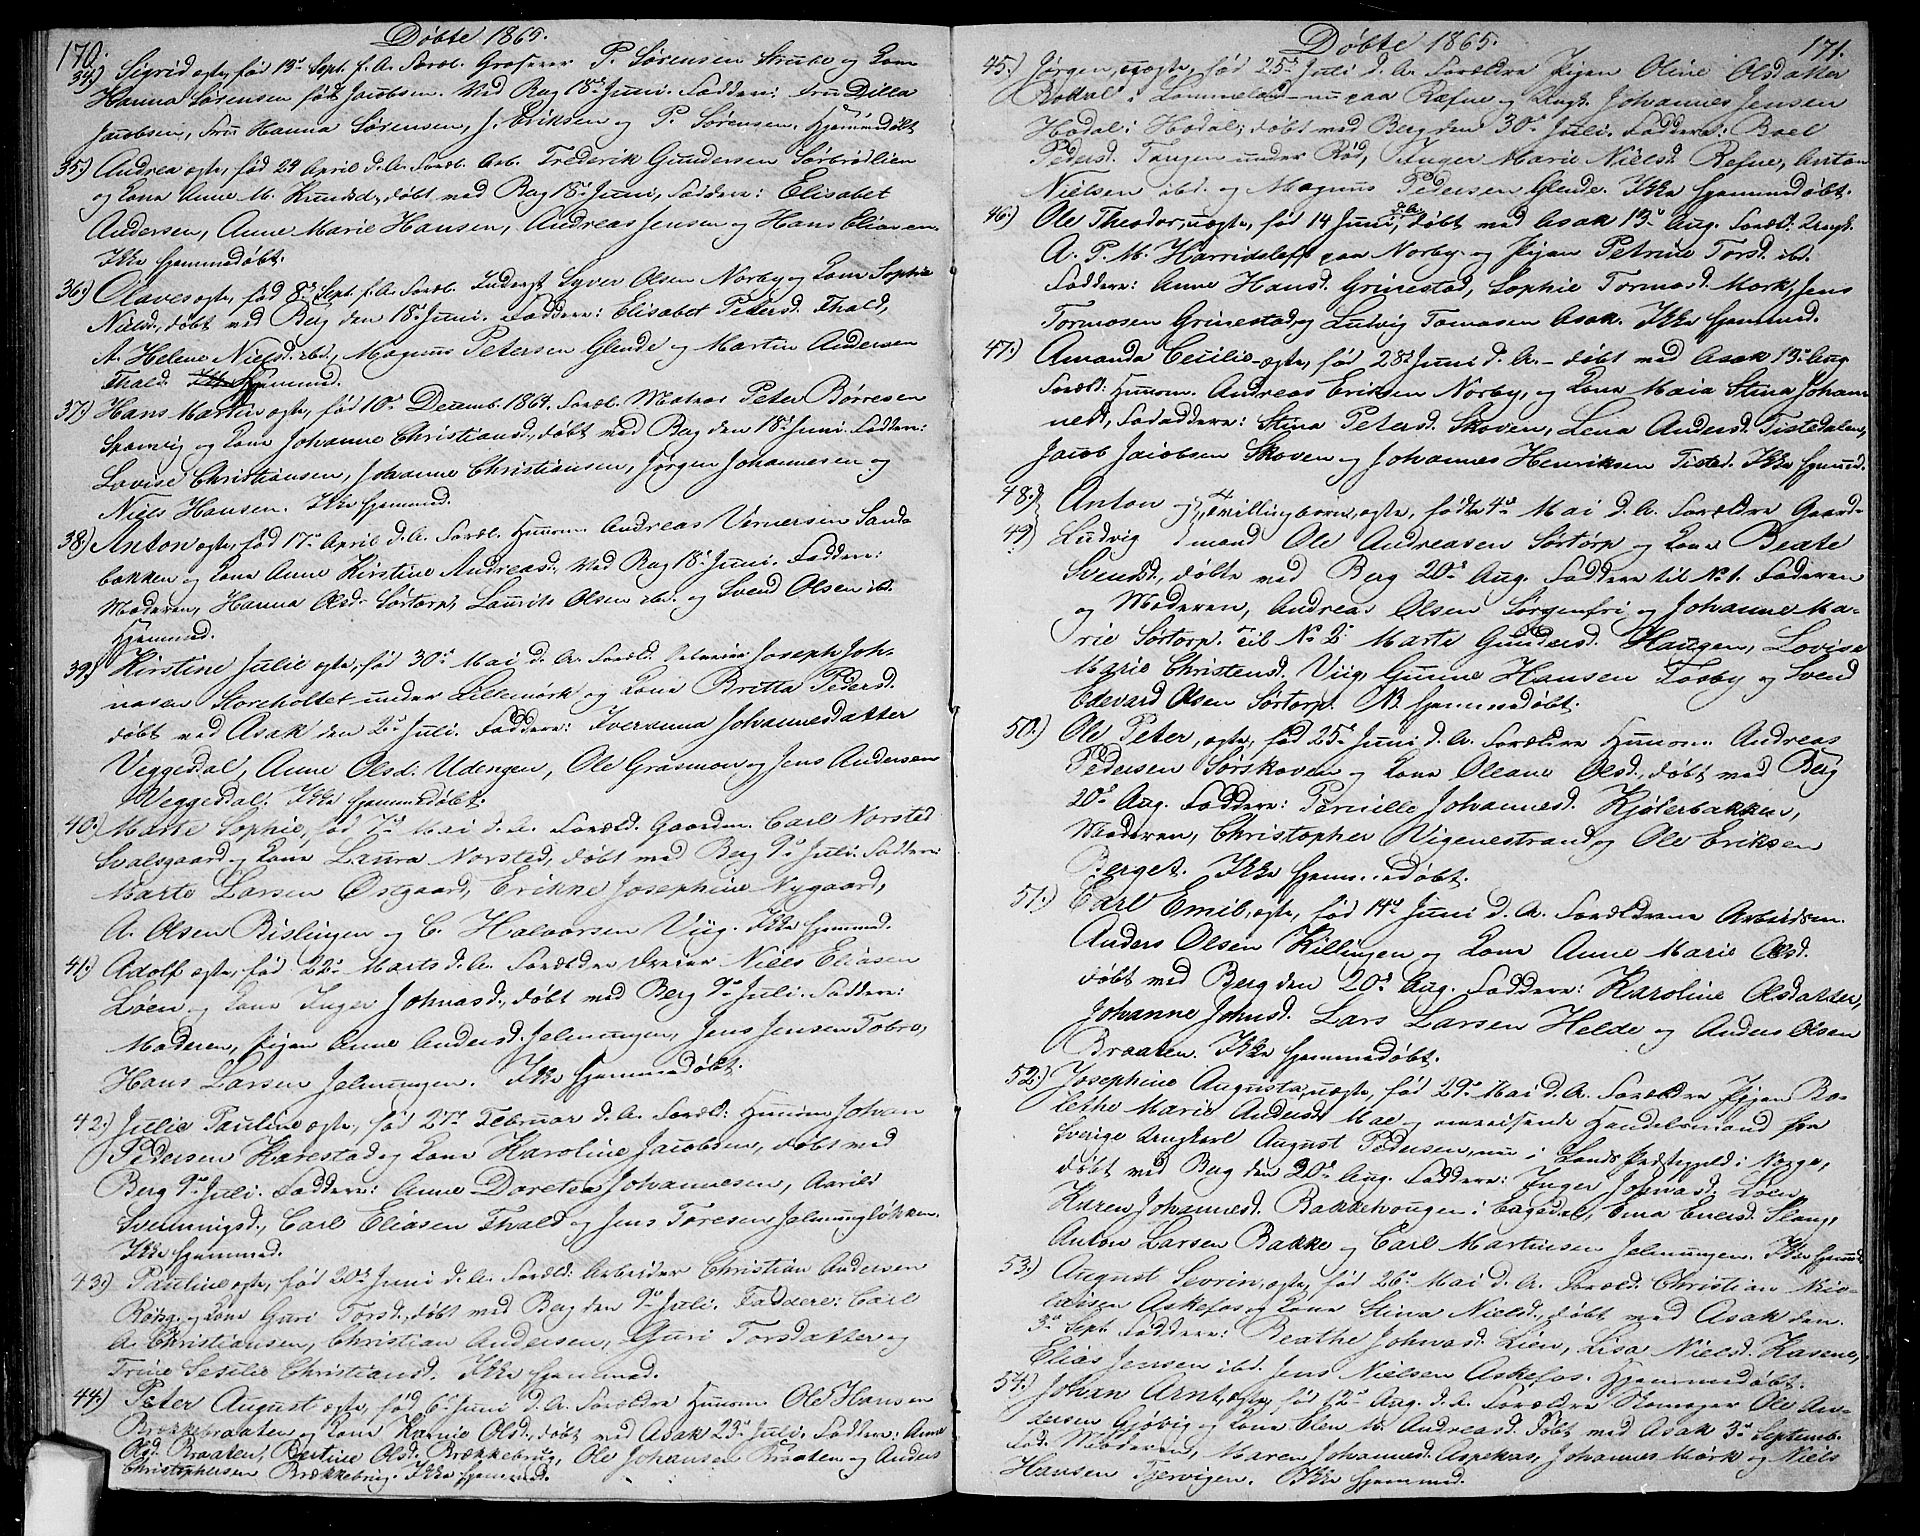 170.
Døbte 1865.
34.) Sigrid ægte, født 13de Sept. f. A. Foræl. Grosserer P. Sørensen Strube og Kone
Hanna Sørensen født Jacobsen. Ved Rag 18de Juni. Faddere: Fru Dilla
Jacobsen, Fru Hanna Sørensen, J. Eriksen og P. Sørensen. Hjemmedøbt
35.) Andrea ægte, fød 24 April d. A. Foræl. Arb. Frederik Gundersen Sørbrødlien
og Kone Anne M. Knudsd., døbt ved Rag 18de Juni, Faddere: Elisabet
Andersen, Anne Marie Hansen, Andreas Jensen og Hans Eliasen.
Ikke hjemmedøbt.
36.) Olaves ægte, fød 8de Sept. f. A. Foræl. Inderst Syver Olsen Norby og Kone Sophie
Nielsd., døbt ved Berg den 18de Juni. Faddere: Elisabet Petersd. Thald,
A. Helene Nielsd. ibd., Magnus Petersen Glende og Martin Andersen
Thald. Ikke Hjemmed.
37.) Hans Martin ægte, fød 10de Decemb. 1864. Foræl. Matros Peter Børresen
Sponvig og Kone Johanne Christiansd., døbt ved Rag den 18de Juni. Faddere:
Lovise Christiansen, Johanne Christiansen, Jørgen Johannesen og
Niels Hansen. Ikke hjemmed.
38.) Anton ægte, fød 17de April d. A. Foræl. Husm. Andreas Vernersen Sand-
bakken og Kone Anne Kirstine Andreasd., Ved Rag 18de Juni. Faddere:
Moderen, Hanna Olsd. Sørtorp, Laurits Olsen ibd. og Svend Olsen ibd.
Hjemmed.
39.) Kirstine Julie ægte, fød 30de Mai d. A. Foræld. Joseph Joh-
nasen Storeholtet under Lillemørk og Kone Britta Pedersd.
døbt ved Asak den 2de Juli. Faddere: Iveranna Johannesdatter
Veggedal, Anne Olsd. Udengen, Ole Grasmon og Jens Andersen
Veggedal. Ikke hjemmedøbt.
40.) Marte Sophie, fød 7de Mai d. A. Foræld. Gaardm. Carl Norsted
Svalsgaard og Kone Laura Norsted, døbt ved Berg 9de Juli. Faddere:
Marte Larsen Østgaard, Erikne Josephine Nygaard,
A. Olsen Bislingen og C. Halvorsen Viig. Ikke hjemmed.
41.) Adolf ægte, fød 22de Marts d. A. Forældre Dreier Niels Eliasen
Löen og Kone Inger Johnasd., døbt ved Berg 9de Juli. Faddere:
Moderen, Pigen Anne Andersd. Jelmungen, Jens Jensen Tobro,
Hans Larsen Jelmungen. Ikke hjemmedøbt.
42.) Julie Pauline ægte, fød 27de Februar d. A. Foræld: Husm. Johan
Pedersen Karestad og Kone Karoline Jacobsen, døbt ved
Berg 9de Juli. Faddere: Anne Dorotea Johannesen, Aarild
Svenningsd., Carl Eliasen Thald og Jens Toresen Jelmungløkken.
Ikke hjemmed.
43.) Pauline ægte, fød 20de Juni d. A. Foræld: Arbeider Christian Andersen
Rösz. og Kone Guri Torsd., døbt ved Berg den 9de Juli. Faddere: Carl
A. Christiansen, Christian Andersen, Guri Torsdatter og
Trine Sesilie Christiansd. Ikke hjemmed.
44.) Peter August ægte, fød 6te Juni d. A. Forældre Husm. Ole Hansen
Brækkebraaten og Kone Karine Olsd., døbt ved Asak 23de Juli. Faddere: Anne
Olsd. Braaten, Bertine Olsd. Brækkebrug, Ole Johansen Braaten og Anders
Christophersen Brækkebrug. Ikke hjemmed.
Døbte 1865.
171.
45.) Jørgen, uægte, fød 25de Juli d. A. Forældre Pigen Oline Olsdatter
Rødal i Lommeland nu paa Refne og Ungk. Johannes Jensen
Hodal i Hodal, døbt ved Berg den 30de Juli. Faddere: Boel
Pedersd. Tangen under Rød, Inger Marie Nielsd. Refne, Anton
Nielsen ibd. og Magnus Pedersen Glende. Ikke hjemmedøbt.
46.) Ole Theodor, uægte, fød 14 Juni d. A., døbt ved Asak 13de Aug. Foræld. Ungk.
A. P. M. Harridsleff paa Norby og Pigen Petrine Torsd. ibd.
Faddere: Anne Hansd. Grimestad, Sophie Tormosd. Mork, Jens
Tormosen Grimestad og Ludvig Tomasen Asak. Ikke hjemmed.
47.) Amanda Cecilie ægte, fød 28de Juni d. A. døbt ved Asak 13de Aug
Foræld: Husm. Andreas Eriksen Norby, og Kone Maia Stina Johan-
nesd., Fadddere: Stina Petersd. Skoven, Lena Andersd. Tistedalen,
Jacob Jacobsen Skoven og Johannes Henriksen Tisted. Ikke hjemmed.
48.) Anton og Tvillingbørn, ægte, fødte 4de Mai d. A. Forældre Gaard-
49.) Ludvig mand Ole Andreasen Sørtorp og Kone Beate
Svensd., døbte ved Berg 20de Aug. Faddere til No 1. Faderen
og Moderen, Andreas Olsen Sorgenfri og Johanne Ma-
rie Sørtorp. Til No 2. Marte Gundersd. Haugen, Lovise
Marie Christensd. Viig, Gunne Hansen Tosby og Svend
Edevard Olsen Sørtorp. NB hjemmedøbt.
50.) Ole Peter, ægte, fød 25de Juni d. A. Forældre Husm. Andreas
Pedersen Sørskoven og Kone Oleane Olsd., døbt ved Berg
20de Aug. Faddere: Pernille Johannesd. Kjølerbakken,
Moderen, Christopher Vigenestrand og Ole Eriksen
Berget. Ikke hjemmedøbt.
51.) Carl Emil, ægte, fød 14de Juni d. A. Forældrene Arbeidsm.
Anders Olsen Killingen og Kone Anne Marie Olsd.
døbt ved Berg den 20de Aug. Faddere: Karoline Olsdatter,
Johanne Johnsd. Lars Larsen Helde og Anders Olsen
Braaten. Ikke hjemmedøbt.
52.) Josephine Augusta, uægte, fød 29de Mai d. A. Forældre Pigen Bo-
lethe Marie Andersd. Moe og omreisende Handelsmand fra
Sverige Ungkarl August Pedersen, nu i Lands Præstegjeld i Norge,
døbt ved Berg den 20de Aug. Faddere: Inger Johnasd. Löen,
Karen Johannesd. Bakkehougen i Eagsdal, Ema Enersd. Slang,
Anton Larsen Bakke og Carl Martinsen Jelmungen. Ikke hjemmed.
53.) August Sevrin, ægte, fød 26de Mai d. A. Foræld. Christian Nico-
laisen Askefos og Kone Stina Nielsd., døbt ved Asak den
3de Sept. Faddere: Beathe Johnasd. Lien, Lisa Nielsd. Kasene,
Elias Jensen ibd. Jens Nielsen Askefos. Hjemmedøbt.
54.) Johan Arnt, ægte, fød 12de Aug. d. A. Forældre Skomager Ole An-
dersen Gjøbig og Kone Elen M. Andreasd. Døbt ved Asak 3de Septemb.
Fad. Moderen, Maren Johannesd. Aspekas, Johannes Mørk og Niels
Hansen Tjervigen. Ikke hjemmed.